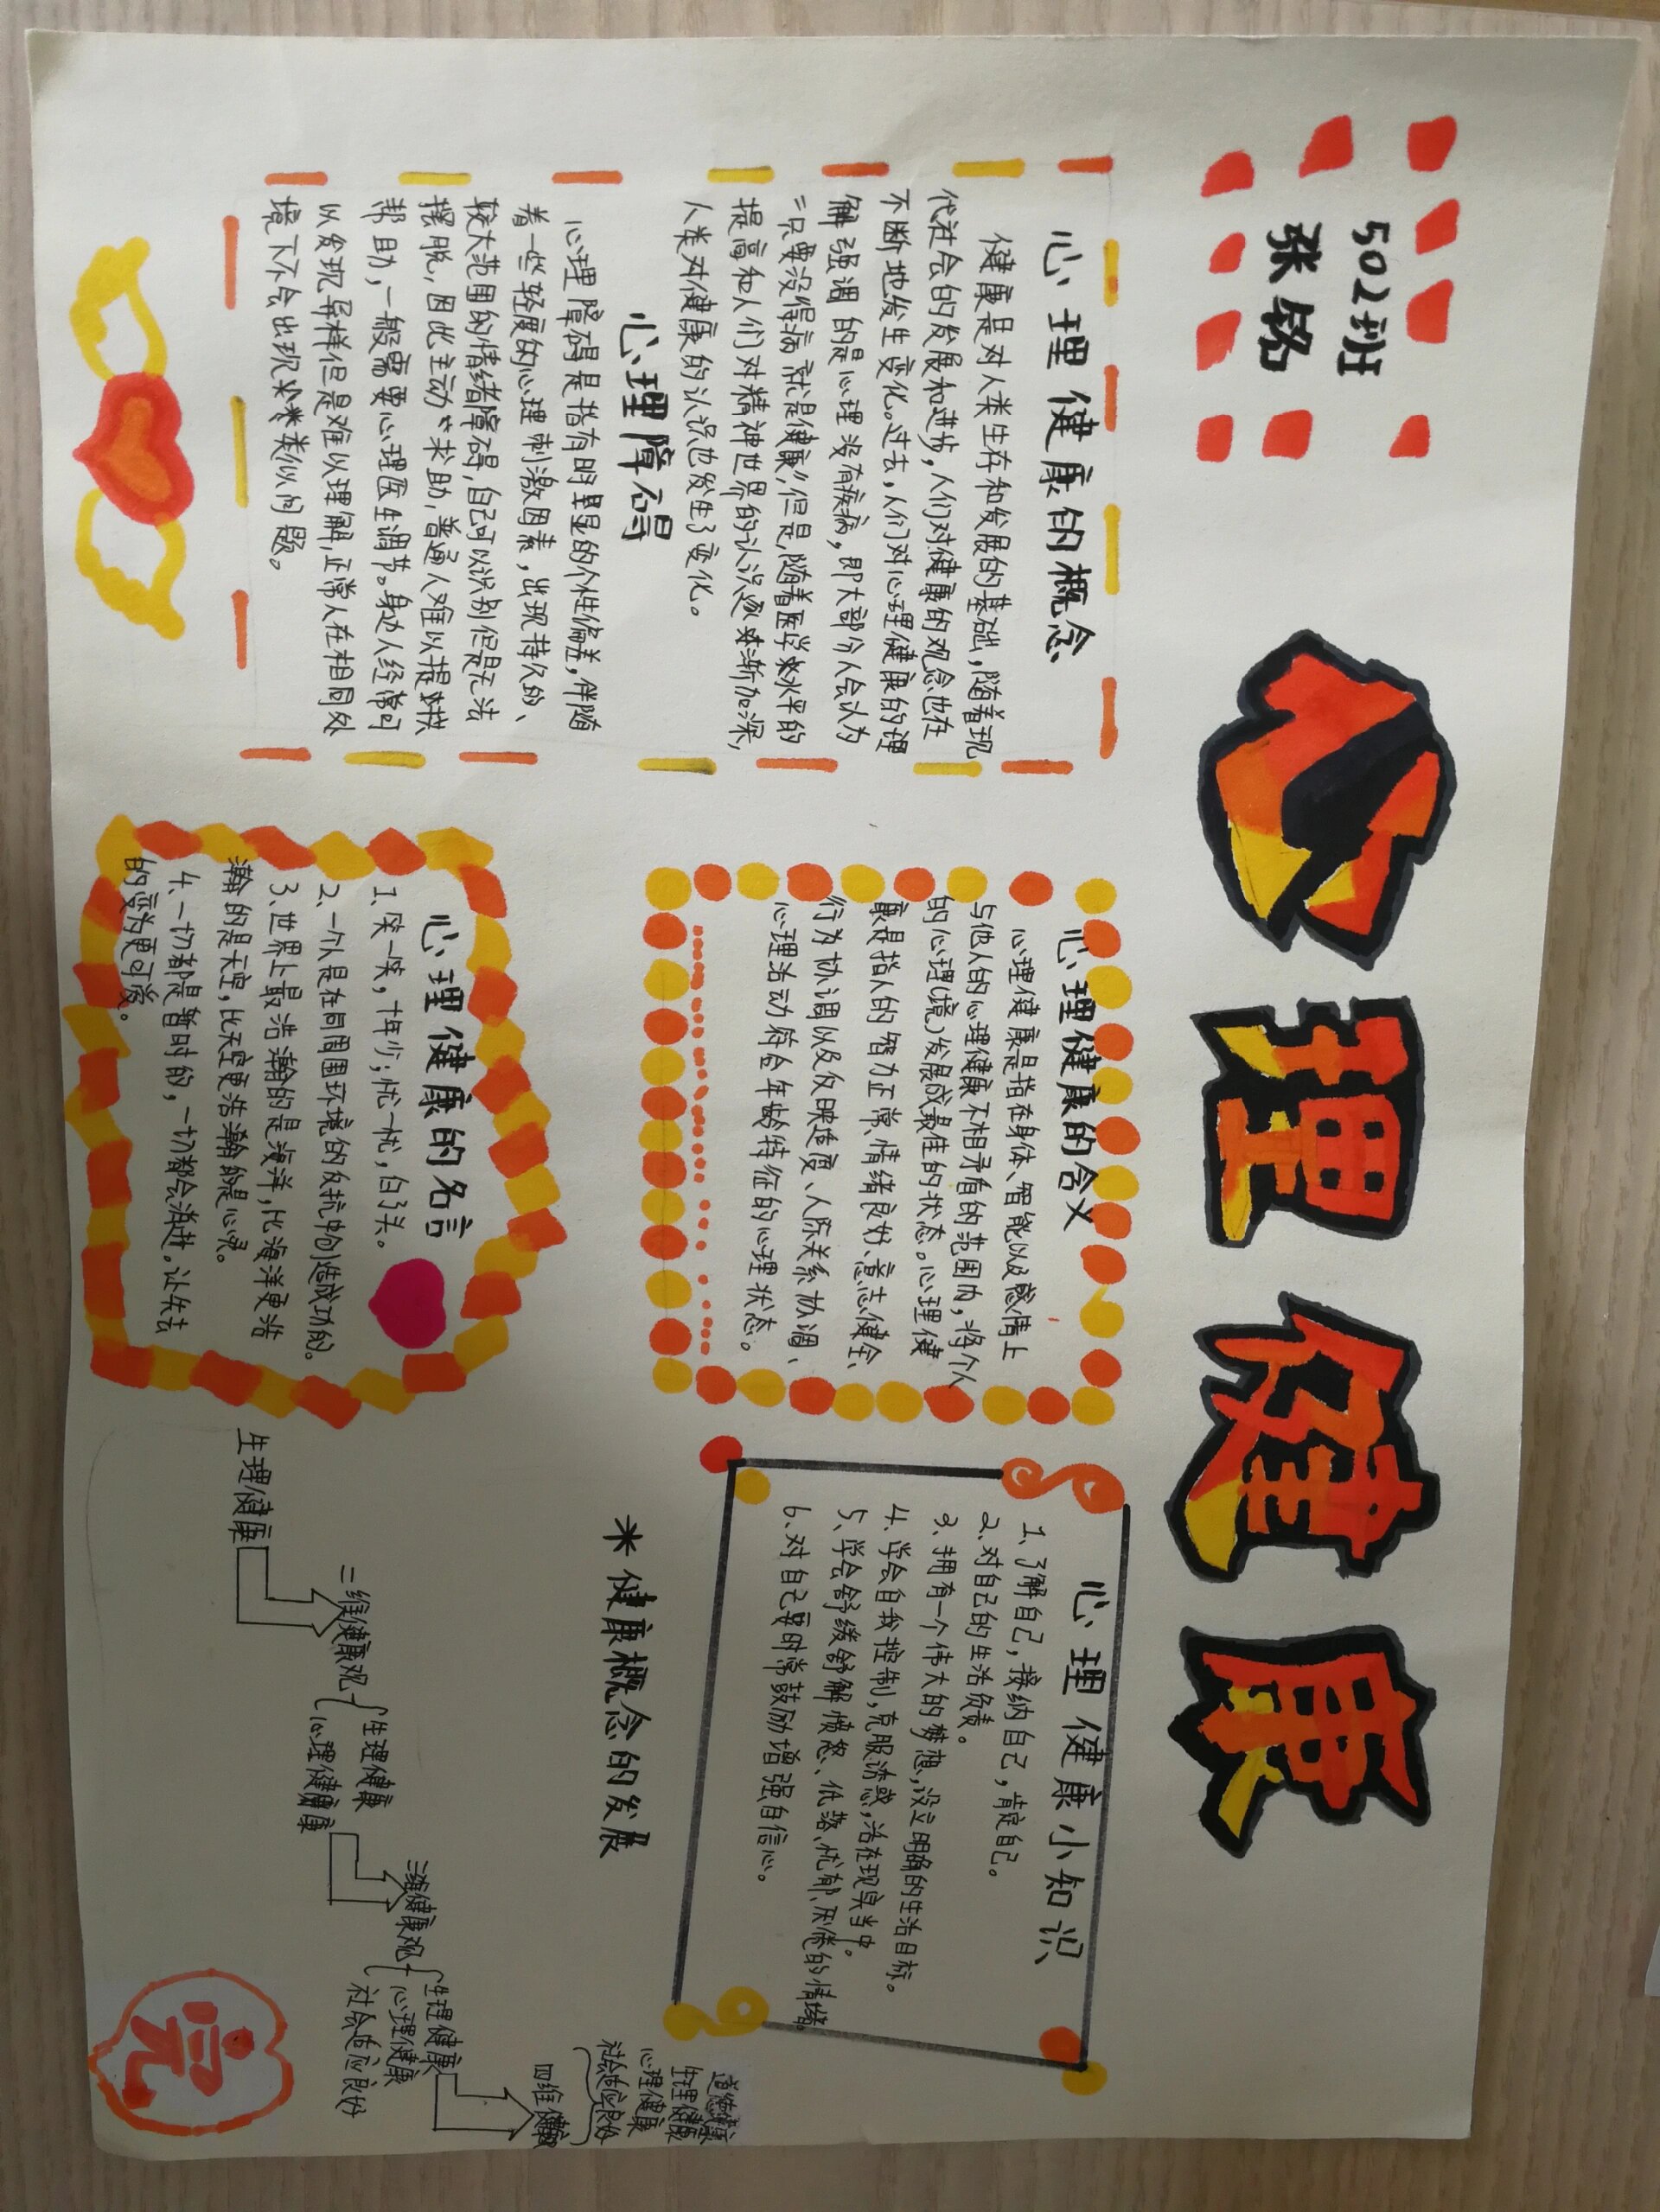 502班
张铭
心理健康
心理健康的概念
健康是对人类生存和发展的基础，随着现
代社会的发展和进步，人们对健康的观念也在
不断地发生变化。过去，人们对心理健康的理
解强调的是心理没有疾病，即大部分人会认为
"只要没得病就是健康"，但是，随着医学水平的
提高和人们对精神世界的认识逐渐加深，
人类对健康的认识也发生了变化。
心理障碍
心理障碍是指有明显的个性偏差，伴随
着一些轻度的心理刺激因素，出现持久的、
较大范围的情绪障碍，自己可以识别但是无法
摆脱，因此主动"求助，普通人难以提供
帮助，一般需要心理医生调节。身边人经常可
以发现异样但是难以理解，正常人在相同处
境下不会出现类似问题。
心理健康的含义
心理健康是指在身体、智能以及感情上
与他人的心理健康不相矛盾的范围内，将个人
的心理（境）发展成最佳的状态。心理健
康是指人的智力正常、情绪良好、意志健全、
行为协调以及反映适度、人际关系协调、
心理活动符合年龄特征的心理状态。
心理健康的名言
1、笑一笑，十年少；忧一忧，白了头。
2、一个人是在同周围环境的反抗中创造成功的。
3、世界上最浩瀚的是海洋，比海洋更浩
瀚的是天空，比天空更浩瀚的是心灵。
4、一切都是暂时的，一切都会消逝。让失去
的变为更可爱。
心理健康小知识
1、了解自己，接纳自己，肯定自己。
2、对自己的生活负责。
3、拥有一个伟大的梦想，设立明确的生活目标。
4、学会自我控制，克服诱惑，活在现实当中。
5、学会舒缓舒解愤怒、低落、忧郁、厌倦的情绪。
6、对自己要时常鼓励增强自信心。
*健康概念的发展
生理健康
二维健康观
生理健康
心理健康
三维健康观
生理健康
心理健康
社会适应良好
四维健康
道德健康
生理健康
心理健康
社会适应良好
完